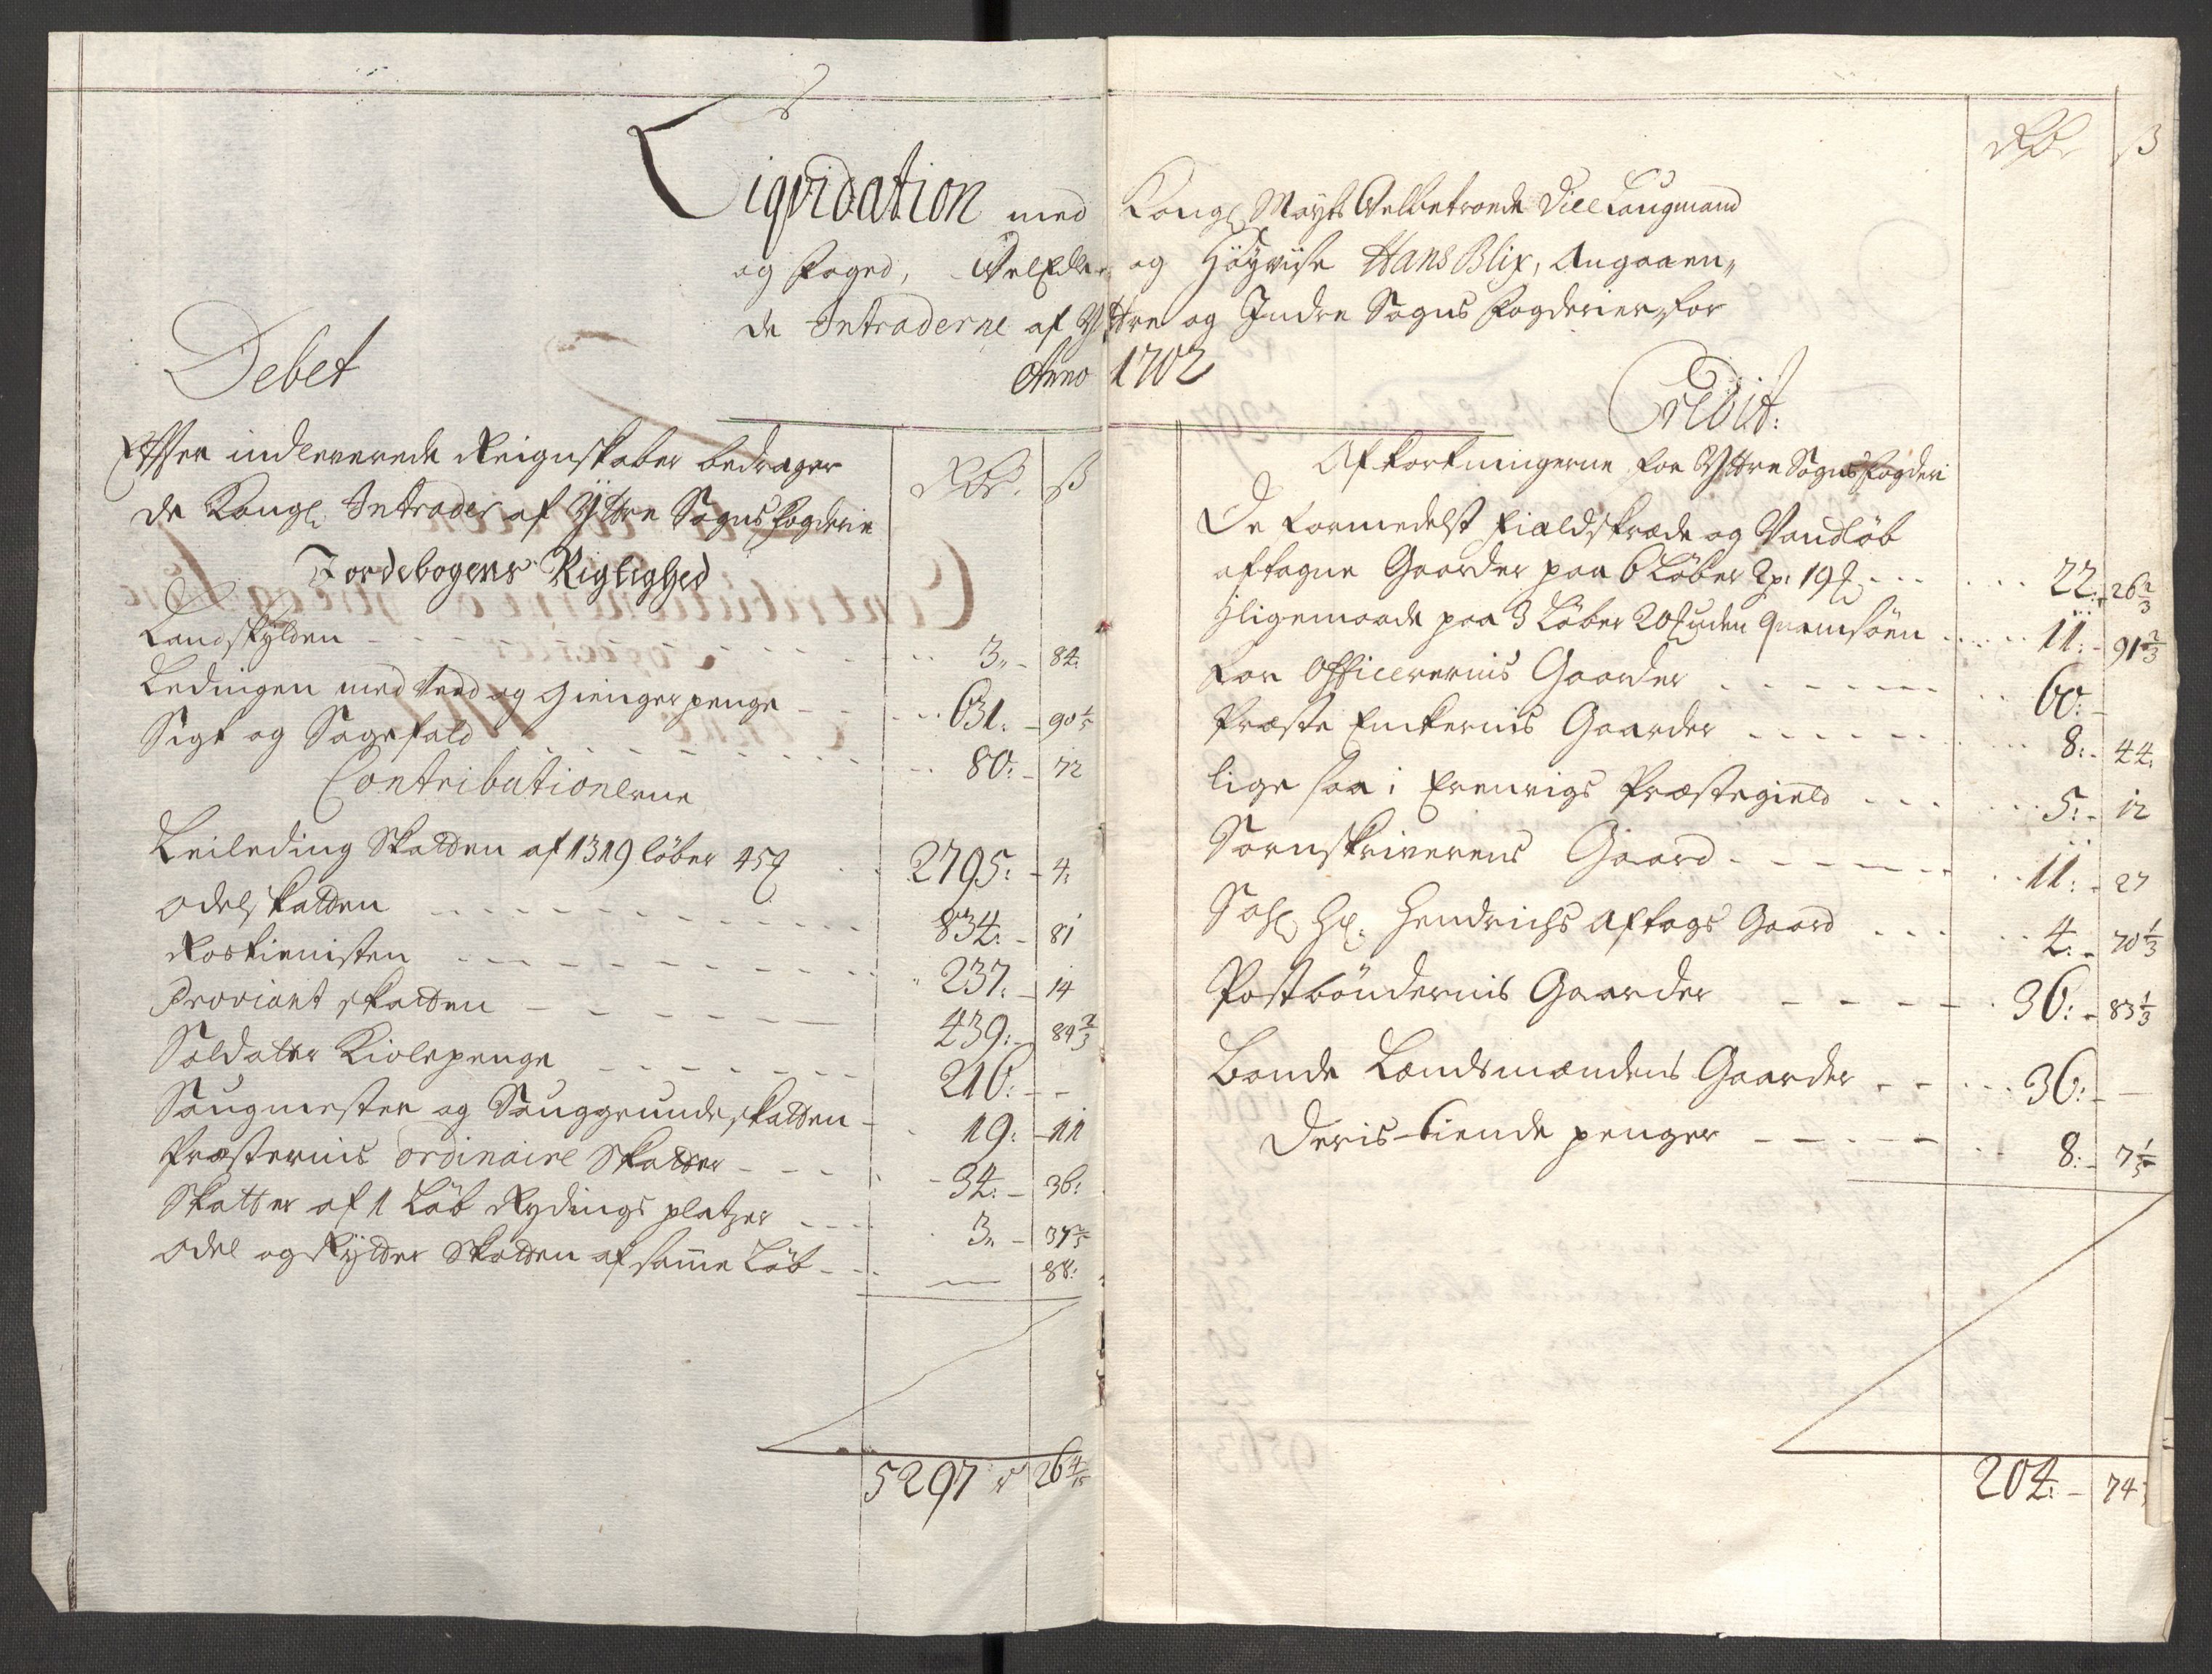 Liqvidation med Kongl Mayts Velbetroede Vice Laugmand
og Foged, Velædle og Høyviise Hans Blix, Angaaen„
de Intraderne af Yttre og Indre Sogns Fogderier, for
Anno 1702
Debet
Efter indleverede Reignskaber bedrager
de Kongl Intrader af Yttre Sogns Fogderie
Rdr. ß
Jordebogens Rigtighed
Landskylden 3„ - 84:
Ledingen med leed og giengerpenge 631: - 90 1/5
Sigt og Sagefald 80: - 72
Contributionerne
Leileding Skatten af 1319 løber 45 2795: - 4:
Odelskatten 834: - 81
Rostienisten 237: - 14
Proviant skatten 439: - 84 2/3
Soldater Kiolepenge 216: - -
Saugmester og Sauggrunde skatten 19: - 11
Præsternis ordinaire Skatter 34: - 36:
Skatter af 1 Løb Rydings platzer 3„ - 37 2/5
Odel og Rytter Skatten af samme Løb — 88:
5297 26 4/15
Rdr ß
Credit:
Afkortningerne for Yttre Sogns Fogderi
De formedelst Fieldskrede og Vandløb
aftagne Gaarder paa 6 Løber 2 p: 19 22: - 26 2/3
Iligemaade paa 3 Løber 20 uden 11: - 91 2/3
For Officerernis Gaarder 60: -
Præste Enckernis Gaarder 8: - 44:
lige saa i Præstegield 5: - 12
Sorenskriverens Gaard 11: - 27
Sahl Hr. Hendrichs Aftags Gaard 4: - 70 1/3
Postbøndernis Gaarder 36: - 83 1/3
Bonde Lændsmændens Gaarder 36: - —
Deris tiende penger 8: - 7 1/5
204: - 74